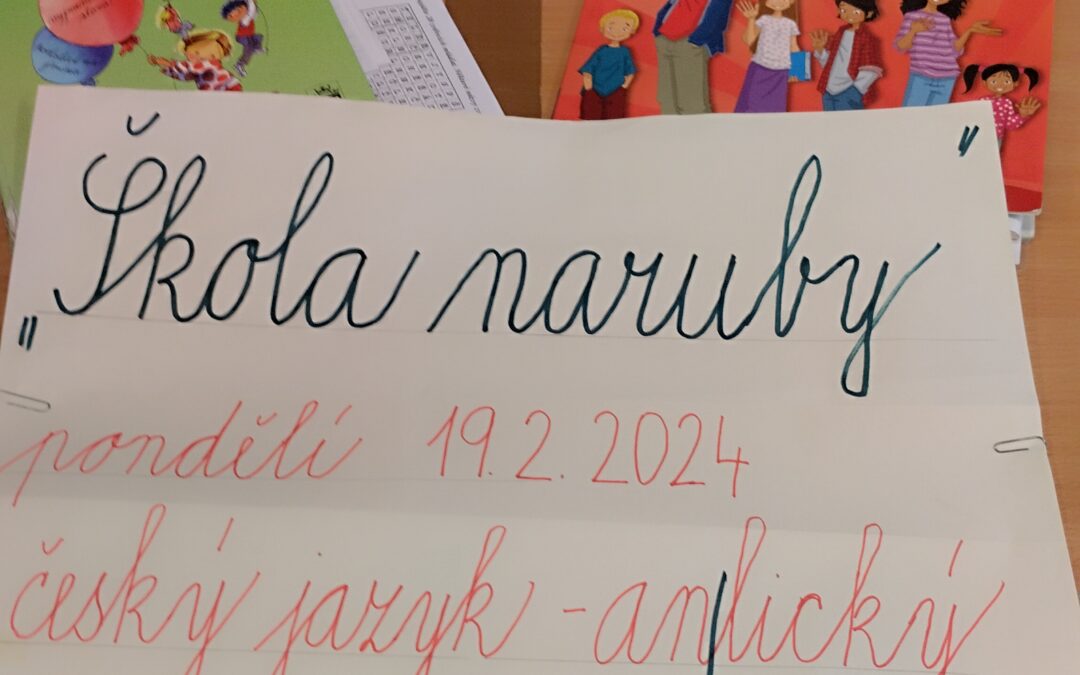 „Škola naruby"
pondělí 19. 2. 2024
český jazyk - anlický